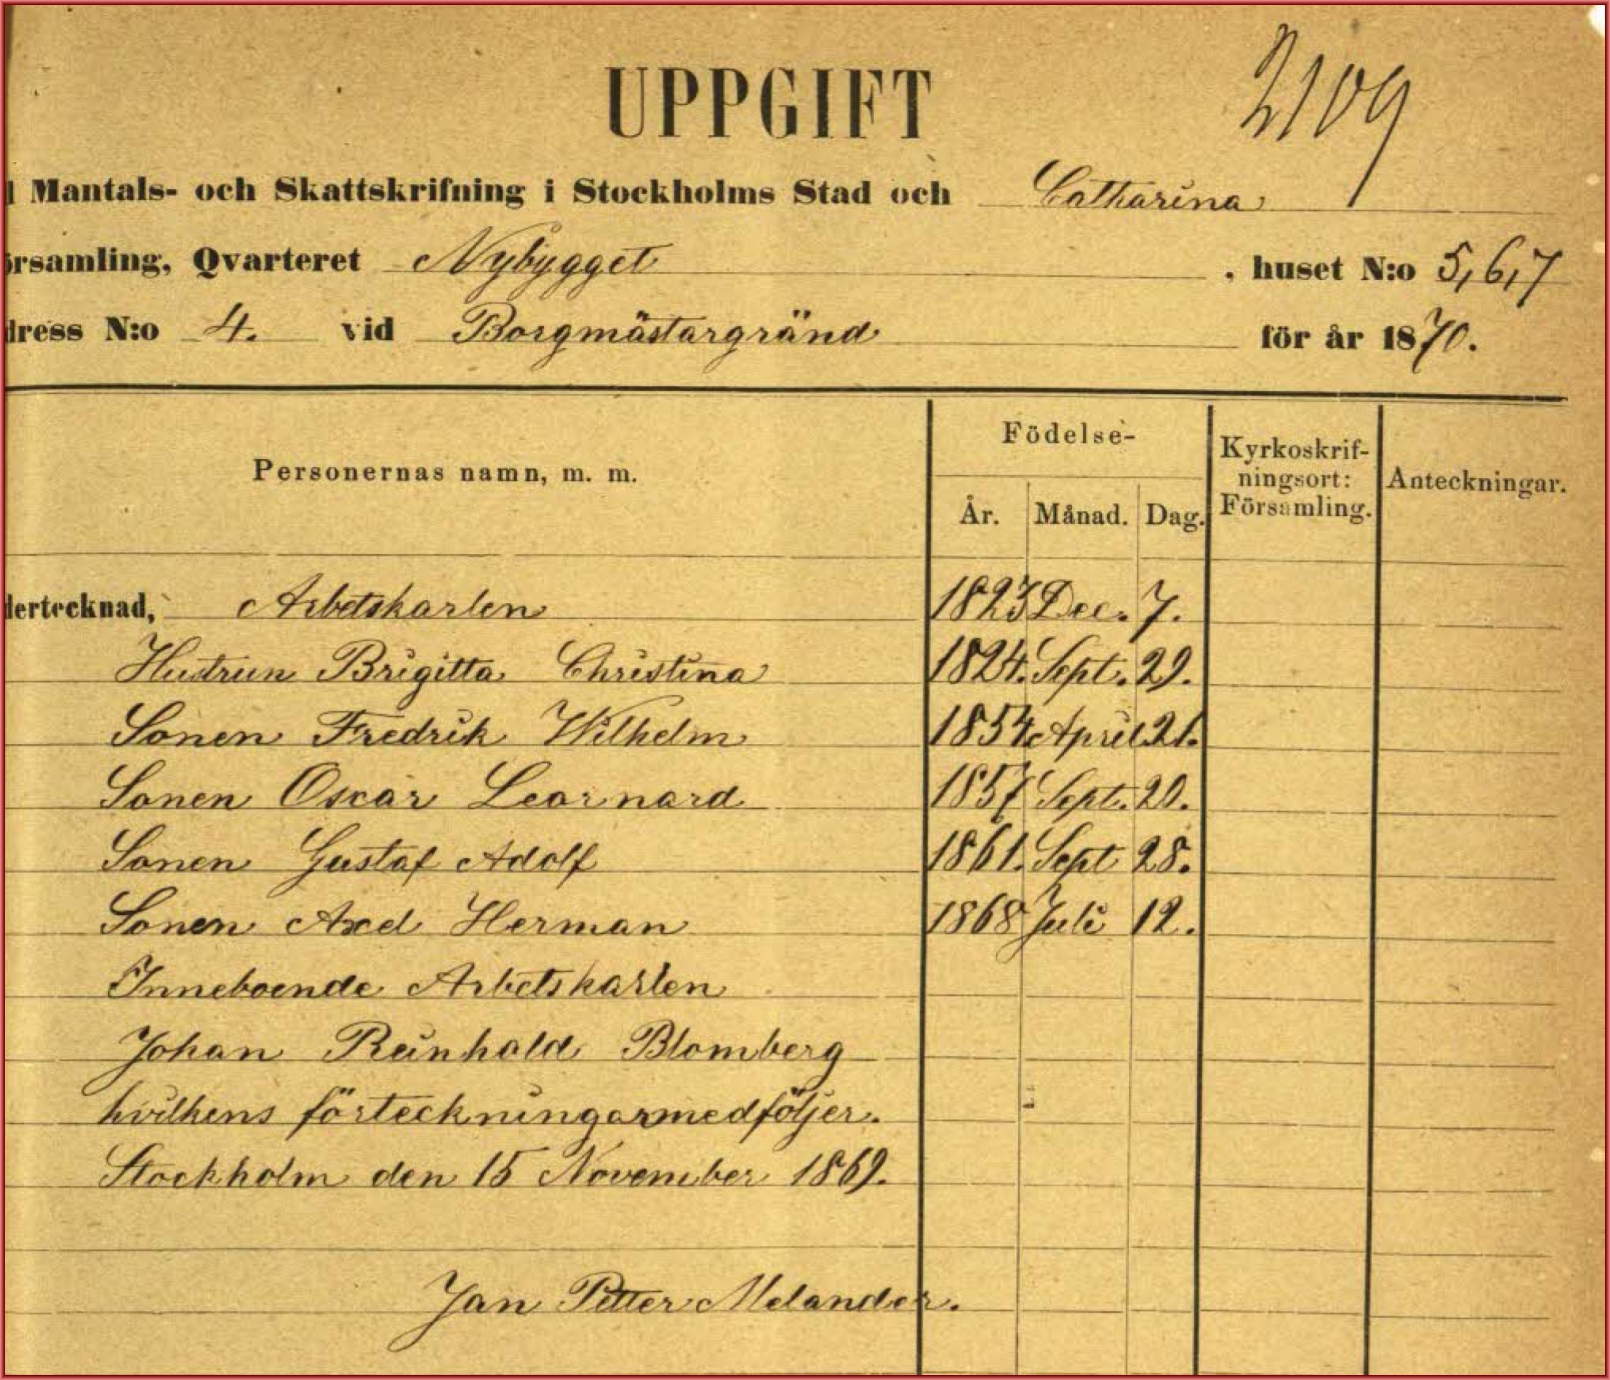 UPPGIFT
2109
l Mantals- och Skattskrifning i Stockholms Stad och Catharina
örsamling, Qvarteret Nybygget, huset N:o 5,6,7
dress N:o 4. vid Borgmästargränd för år 1870.
Personernas namn, m. m.
Födelse-
År. Månad. Dag.
Kyrkoskrif-
ningsort:
Församling.
Anteckningar.
dertecknad, Arbetskarlen 1823 Dec. 7.
Hustrun Brigitta Christina 1824. Sept. 29.
Sonen Fredrik Wilhelm 1854 April 21.
Sonen Oscar Leornard 1857 Sept. 20.
Sonen Gustaf Adolf 1861. Sept 28.
Sonen Axel Herman 1868 Juli 12.
Inneboende Arbetskarlen
Johan Reinhold Blomberg
hvilkens förteckningarmedföljer.
Stockholm den 15 November 1869.
Jan Petter Melander.